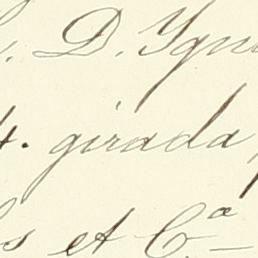 D. Ygn
4. girada
s et C.ª